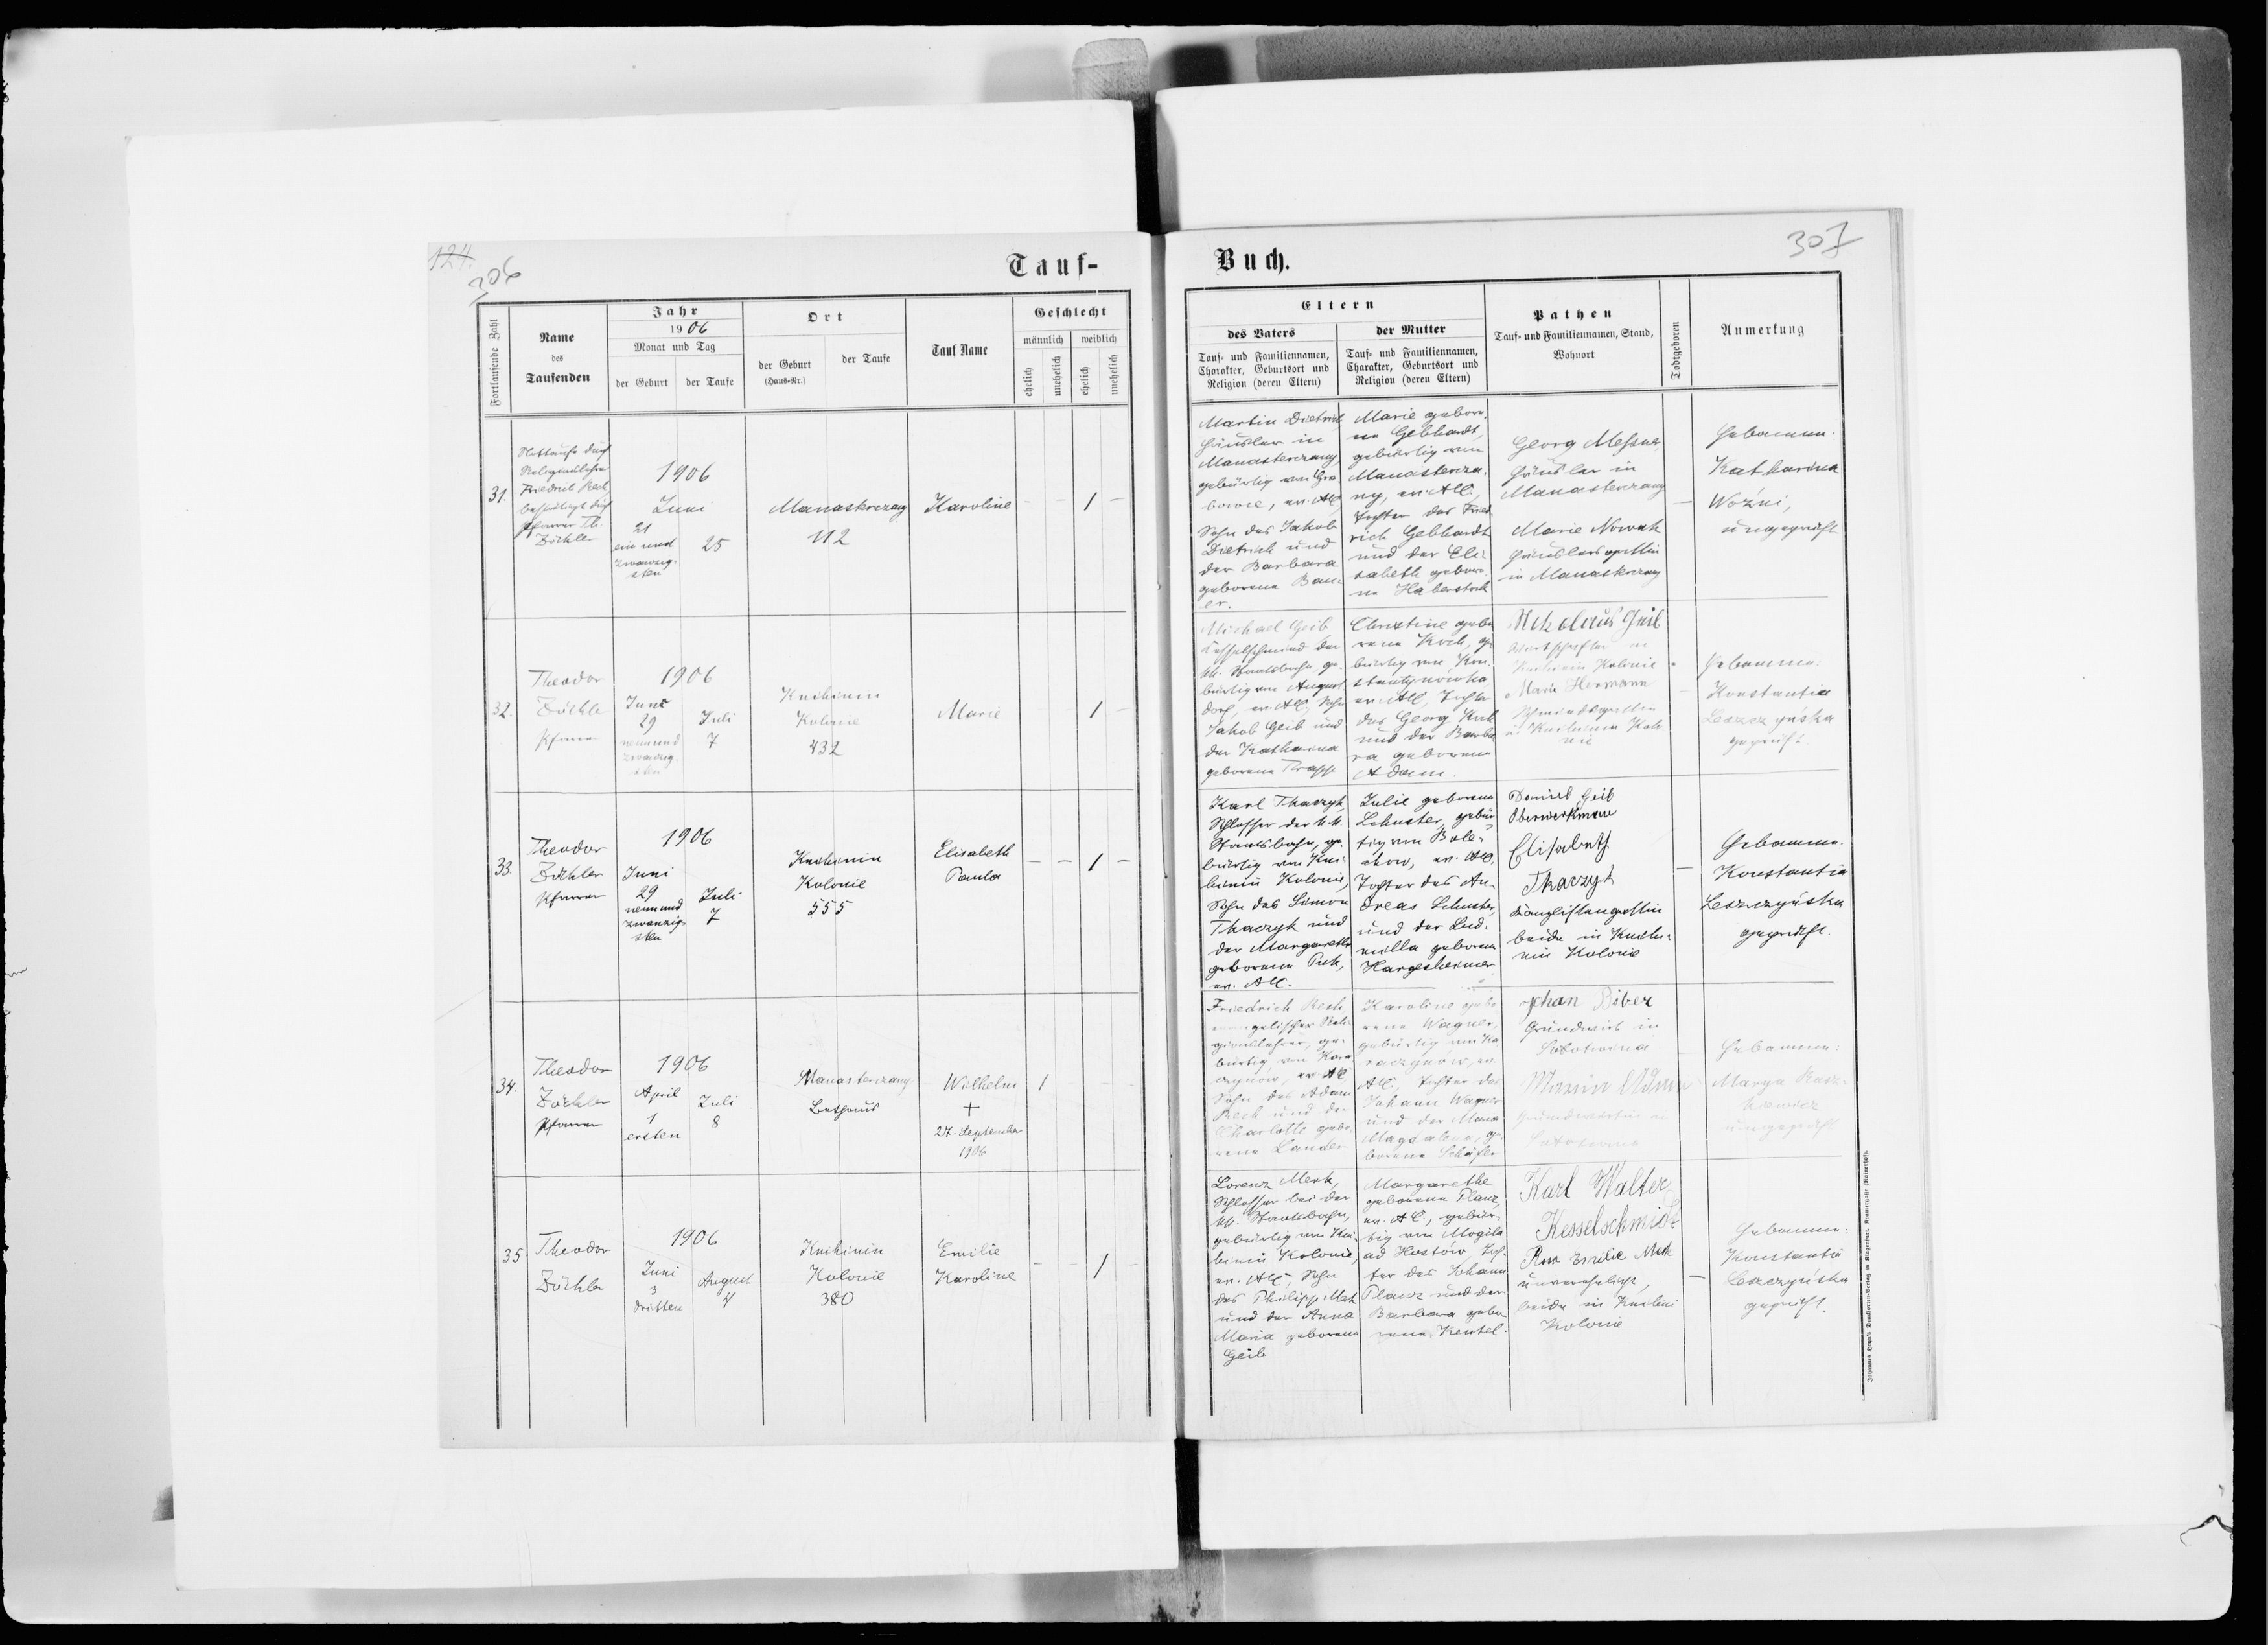 124.
306
Tauf-
Fortlaufende Zahl
Name
des
Taufenden
Jahr
1906
Monat und Tag
der Geburt
der Taufe
Ort
der Geburt
(Haus-Nr.)
der Taufe
Tauf Name
Geschlecht
männlich
weiblich
ehelich
unehelich
ehelich
unehelich
31.
Nottaufe durch
Religionslehrer
Friedrich Rech
bestätigt durch
Pfarrer Th.
Zöckler
1906
Juni
21
ein und
zwanzig-
sten
25
Manasterczany
112
Karoline
- - 1 -
32.
Theodor
Zöckler
Pfarrer
1906
Juni
29
neunund
zwanzig-
sten
Juli
7
Knihinin
Kolonie
432
Marie
- - 1 -
33.
Theodor
Zöckler
Pfarrer
1906
Juni
29
neunund
zwanzig-
sten
Juli
7
Knihinin
Kolonie
555
Elisabeth
Paula
- - 1 -
34.
Theodor
Zöckler
Pfarrer
1906
April
1
ersten
Juli
8
Manasterczany
Bethaus
Wilhelm
+
27. September
1906
1
35.
Theodor
Zöckler
1906
Juni
3
dritten
August
4
Knihinin
Kolonie
380
Emilie
Karoline
- - 1 -
Buch.
307
Eltern
des Vaters
Tauf- und Familiennamen,
Charakter, Geburtsort und
Religion (deren Eltern)
der Mutter
Tauf- und Familiennamen,
Charakter, Geburtsort und
Religion (deren Eltern)
Pathen
Tauf- und Familiennamen, Stand,
Wohnort
Todtgeboren
Anmerkung
Martin Dietrich
Häusler in
Manasterczany,
gebürtig von Gra-
bowce, ev. AC,
Sohn des Jakob
Dietrich und
der Barbara
geborene Bau-
er.
Marie gebore-
ne Gebhardt,
gebürtig von
Manastercza-
ny, ev. AC,
Tochter des Fried-
rich Gebhardt
und der Eli-
sabeth gebore-
ne Haberstock
Georg Messner
Häusler in
Manasterczany
Marie Nowak
Häuslersgattin
in Manasterczany
-
Hebamme:
Katharina
Woźni,
ungeprüft
Michael Geib
Kesselschmied der
kk. Staatsbahn ge-
bürtig von August-
dorf, ev. AC, Sohn
Jakob Geib und
der Katharina
geborene
Christine gebo-
rene Koch, ge-
bürtig von Kon-
stantynowka
ev. AC, Tochter
des Georg Koch
und der Barba-
ra geborene
Adam.
Nikolaus Geib
Wirtschafter in
Knihinin Kolonie
Marie Hermann
Schmiedsgattin
in Knihinin Kolo
nie
-
Hebamme:
Konstantia
Leszczyńska
geprüft
Karl Tkaczyk,
Schlosser der kk.
Staatsbahn, ge-
bürtig von Kni-
hinin Kolonie,
Sohn des Simon
Tkaczyk und
der Margarethe
geborene
ev. AC.
Julie geborene
Schuster, gebür-
tig von Bole-
chow, ev. AC,
Tochter des An-
dreas Schuster,
und der Lud-
milla geborene
Hargesheimer
Daniel Geib
Oberwerkmann
Elisabeth
Tkaczyk
Kanzlistengattin
beide in Knihi-
nin Kolonie
-
Hebamme:
Konstantia
Leszczyńska
geprüft.
Friedrich Rech
evangelischer Reli-
gionslehrer, ge-
bürtig von
ev. AC
Sohn des Adam
Rech und der
Charlotte gebo-
rene Lander
Karoline gebo
rene Wagner,
gebürtig von
ev.
AC, Tochter des
Johann Wagner
und der Maria
Magdalena, ge-
borene Schäfer
Johan Biber
Grundwirt in
Solotwina
Grundwirtin in
Solotwina
Hebamme:
Marya
ungeprüft
Lorenz Merk,
Schlosser bei der
kk. Staatsbahn,
gebürtig von Kni-
hinin Kolonie,
ev. AC, Sohn
des Philipp Merk
und der Anna
Maria geborene
Geib
Margarethe
geborene Planz,
ev. AC, gebür-
tig von Mogila
ad Hostów, Toch-
ter des Johann
Planz und der
Barbara gebo
rene Kentel.
Karl Walter
Kesselschmied
Rosa Emilie Merk
unverehelicht,
beide in Knihini
Kolonie
-
Hebamme:
Konstantia
Leszczyńska
geprüft.